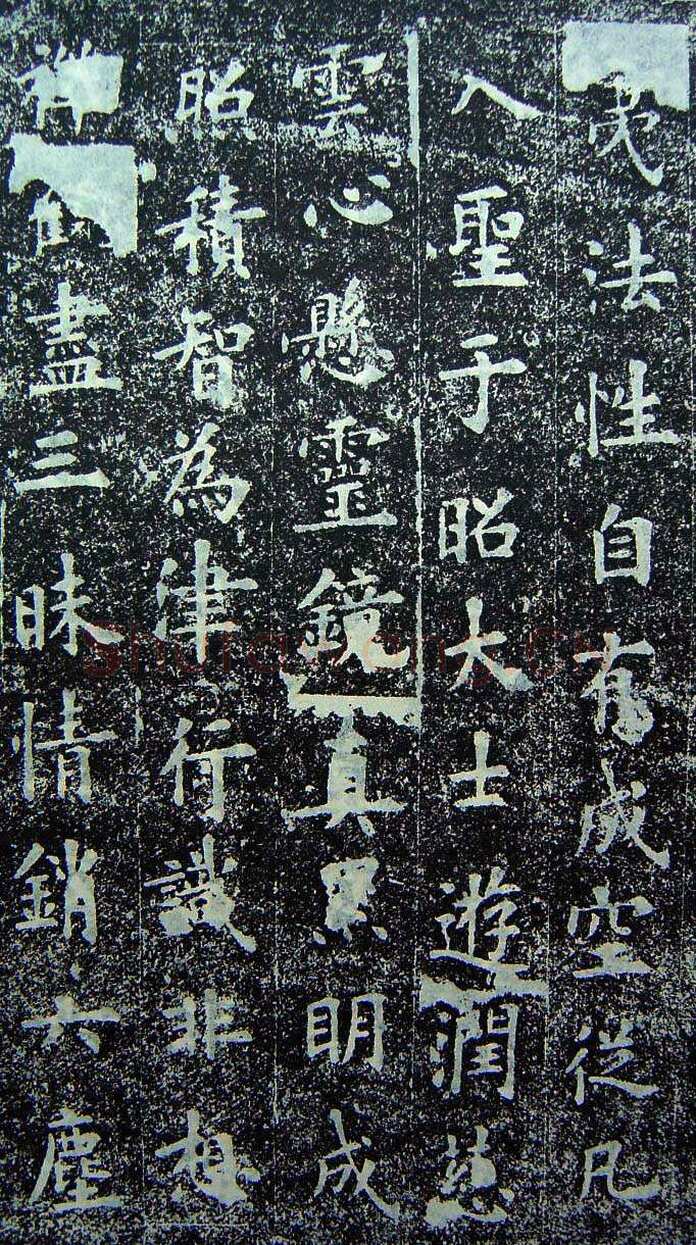 法性自有成空從凡
入聖于昭大士遊潤慈
雲心懸靈鏡真累明成
昭積智為津行識非想
盡三昧情銷六塵